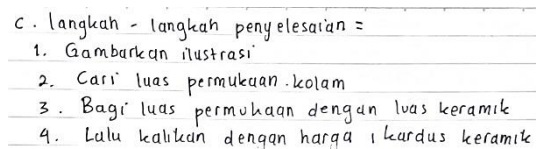 C. langkah - langkah penyelesaian =
1. Gambarkan ilustrasi
2. Cari luas permukaan kolam
3. Bagi luas permukaan dengan luas keramik
4. Lalu kalikan dengan harga 1 kardus keramik